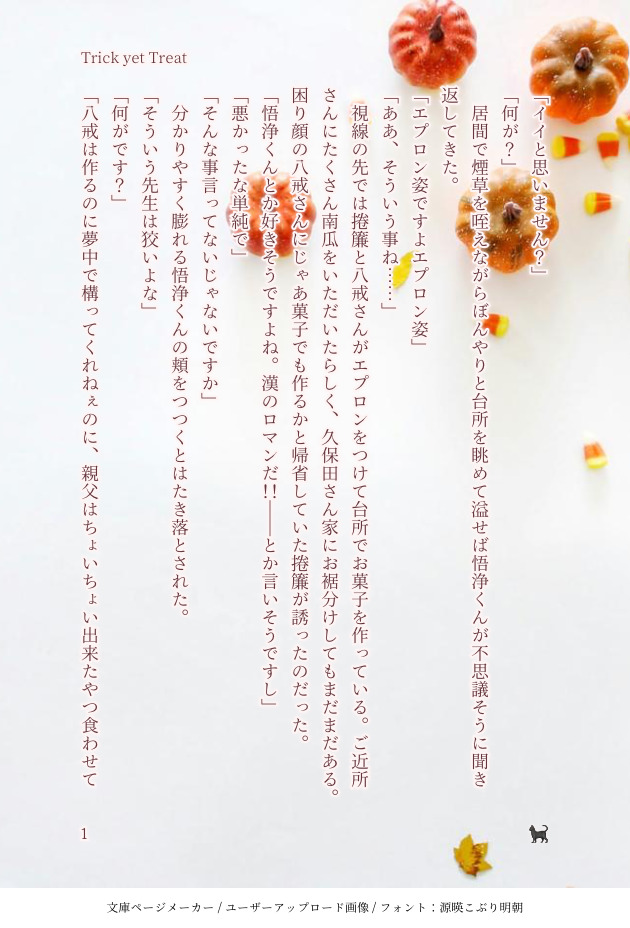 Trick yet Treat
「イイと思いません？」
「何が？」
　居間で煙草を咥えながらぼんやりと台所を眺めて溢せば悟浄くんが不思議そうに聞き
返してきた。
「エプロン姿ですよエプロン姿」
「ああ、そういう事ね……」
　視線の先では捲簾と八戒さんがエプロンをつけて台所でお菓子を作っている。ご近所
さんにたくさん南瓜をいただいたらしく、久保田さん家にお裾分けしてもまだまだある。
困り顔の八戒さんにじゃあ菓子でも作るかと帰省していた捲簾が誘ったのだった。
「悟浄くんとか好きそうですよね。漢のロマンだ!!――とか言いそうですし」
「悪かったな単純で」
「そんな事言ってないじゃないですか」
　分かりやすく膨れる悟浄くんの頬をつつくとはたき落とされた。
「そういう先生は狡いよな」
「何がです？」
「八戒は作るのに夢中で構ってくれねぇのに、親父はちょいちょい出来たやつ食わせて
1
文庫ページメーカー / ユーザーアップロード画像 / フォント：源暎こぶり明朝